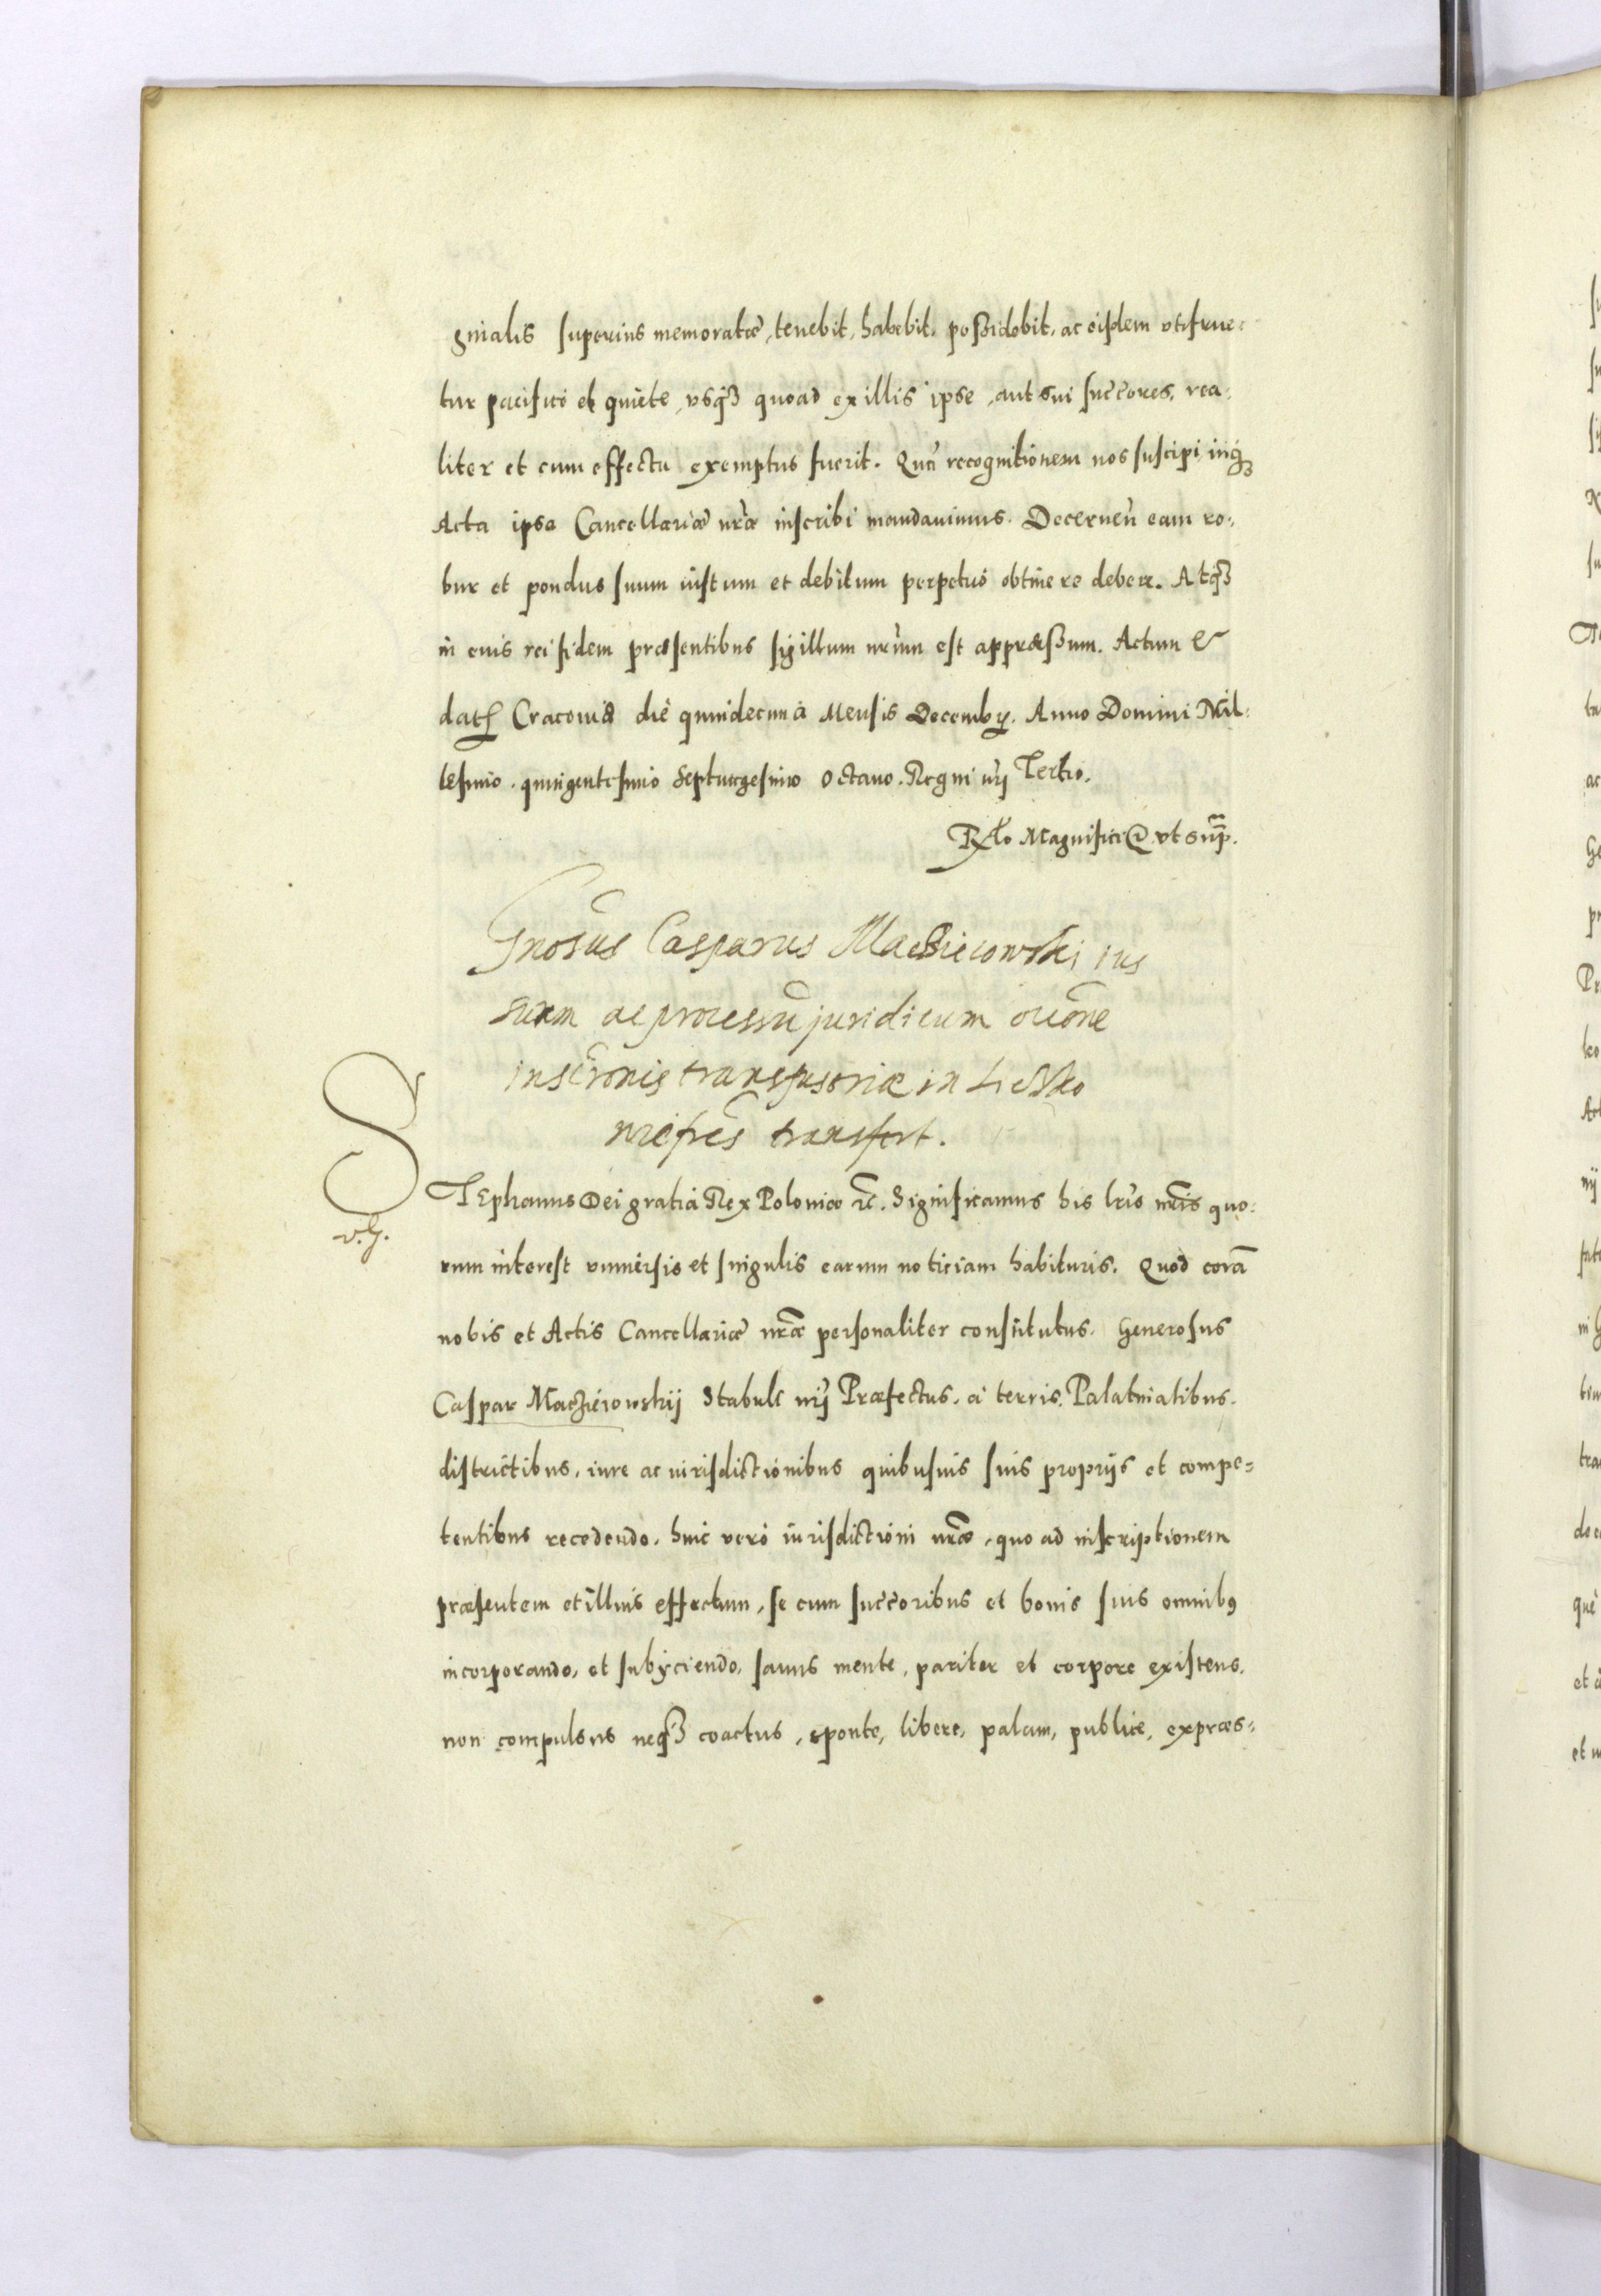 gnialis superius memoratæ, tenebit, habebit, possidebit, ac eisdem utifrue-
tur pacificè et quiete, usq3 quoad ex illis ipse, aut sui succ̃ores, rea-
liter et cum effectu exemptus fuerit. Quã recognitionem nos suscipi, inq3
Acta ipsa Cancellariæ nr̃æ inscribi mandavimus. Decernen̄ eam ro-
bur et pondus suum iustum et debitum perpetuò obtinere debere. Atq3
in cuius rei fidem præsentibus sigillum nr̃um est appræssum. Actum &
dat. Cracoviæ die quindecima Mensis Decembr. Anno Domini Mil-
lesimo quingentesimo Septuagesimo Octavo. Regni nr̃i Tertio.
Rela̅o Magnifici ut sup̃.
Gnosus Casparus Maciieiowski ius
suum ac processũ juridicum ōcc̃one
inscr̃onis transfusoriæ in
transfert.
STEphanus Dei gratia Rex Poloniæ etc̃. Significamus his lr̃is nr̃is quo-
v. g.
rum interest universis et singulis earum noticiam habituris. Quod corã
nobis et Actis Cancellariæ nr̃æ personaliter constitutus. Generosus
Caspar Maciieiowskij Stabuli nr̃i Præfectus, à terris, Palatinatibus,
districtibus, iure ac iurisdictionibus quibusvis suis proprijs et compe-
tentibus recedendo, huic verò iurisdictioni nr̃æ, quo ad inscriptionem
præsentem et illius effectum, se cum succ̃oribus et bonis suis omnibꝰ
incorporando, et subijciendo, sanus mente, pariter et corpore existens,
non compulsus neq3 coactus, sponte, libere, palam, publice, expræs-